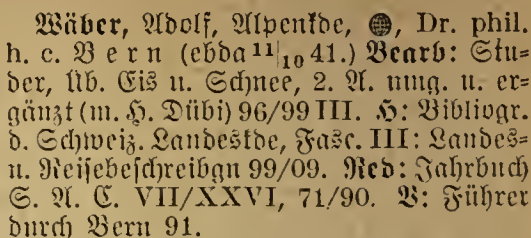 Wäber, Adolf, Alpenkde, 🌐, Dr. phil.
h. c. Bern (ebda 11|10 41.) Bearb: Stu-
der, Üb. Eis u. Schnee, 2. A. umg. u. er-
gänzt (m. H. Dübi) 96/99 III. H: Bibliogr.
d. Schweiz. Landeskde, Fasc. III: Landes-
u. Reisebeschreibgn 99/09. Red: Jahrbuch
S. A. C. VII/XXVI, 71/90. V: Führer
durch Bern 91.